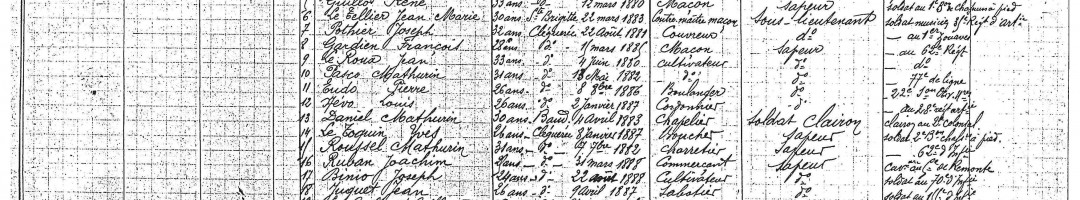 Guillot René 33 ans do 12 mars 1880 Macon Sapeur soldat au 1er Bon de chasseurs à pied
6 Le Tellier Jean Marie 30 ans Ste Brigitte 22 mars 1883 Contre-maître macon Sous-lieutenant soldat musicien 31e Régt d'artie
7 Pothier Joseph 32 ans Cléguérec 22 Août 1881 Couvreur do — au 1er Zouaves
8 Gardien François 28 ans do 1 mars 188 Macon Sapeur — au 62e Régt
9 Le Roux Jean 33 ans do 4 Juin 1880 cultivateur do do
10 Pasco Mathurin 31 ans do 18 Mai 1882 do do — 77e de ligne
11 Eudo Pierre 26 ans do 8 8bre 1886 Boulanger do — 22e
12 Hévo Louis 26 ans do 2 Janvier 1887 Cordonnier do — au 28e régt artie
13 Daniel Mathurin 30 ans Baud 4 Avril 1883 Chapelier Soldat Clairon Clairon au 2e Colonial
14 Le Toquin Yves 26 ans Cléguérec 8 Janvier 1887 Boucher Sapeur soldat 2e Bon chasrs à pied
Roussel Mathurin 31 ans do 7bre 1882 Charretier Sapeur 62e d'Infie
16 Ruban Joachim ans do 31 mars 1888 Commerçant Sapeur Cavr au de Remonte
17 Binio Joseph 24 ans do 22 août 1888 Cultivateur do soldat au 70e d'Infie
18 Juguet Jean 26 ans do 9 Avril 1887 Sabotier do soldat au